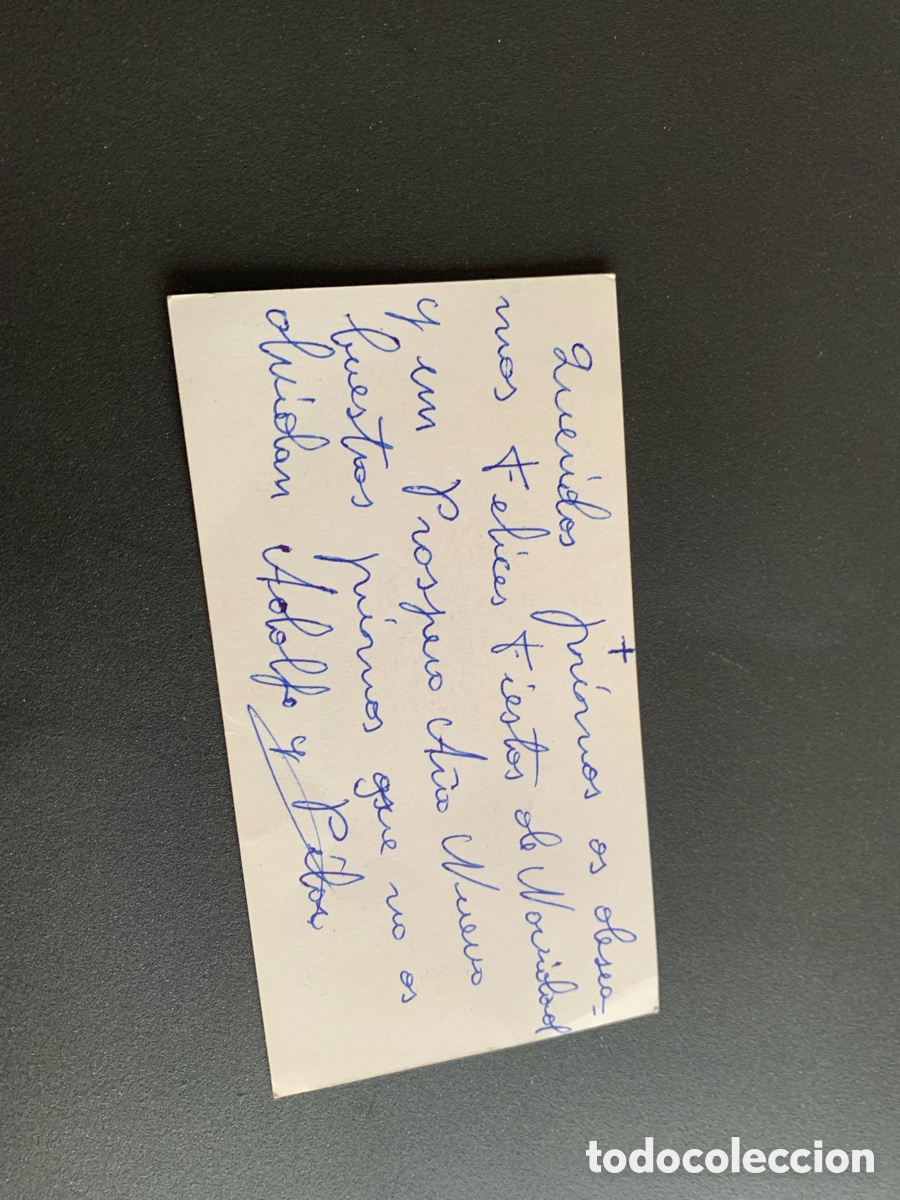 +
Queridos primos os desea-
mos Felices Fiestas de Navidad
y un Prospero Año Nuevo
buestros primos que no os
olvidan Adolfo y Pilar
todocoleccion